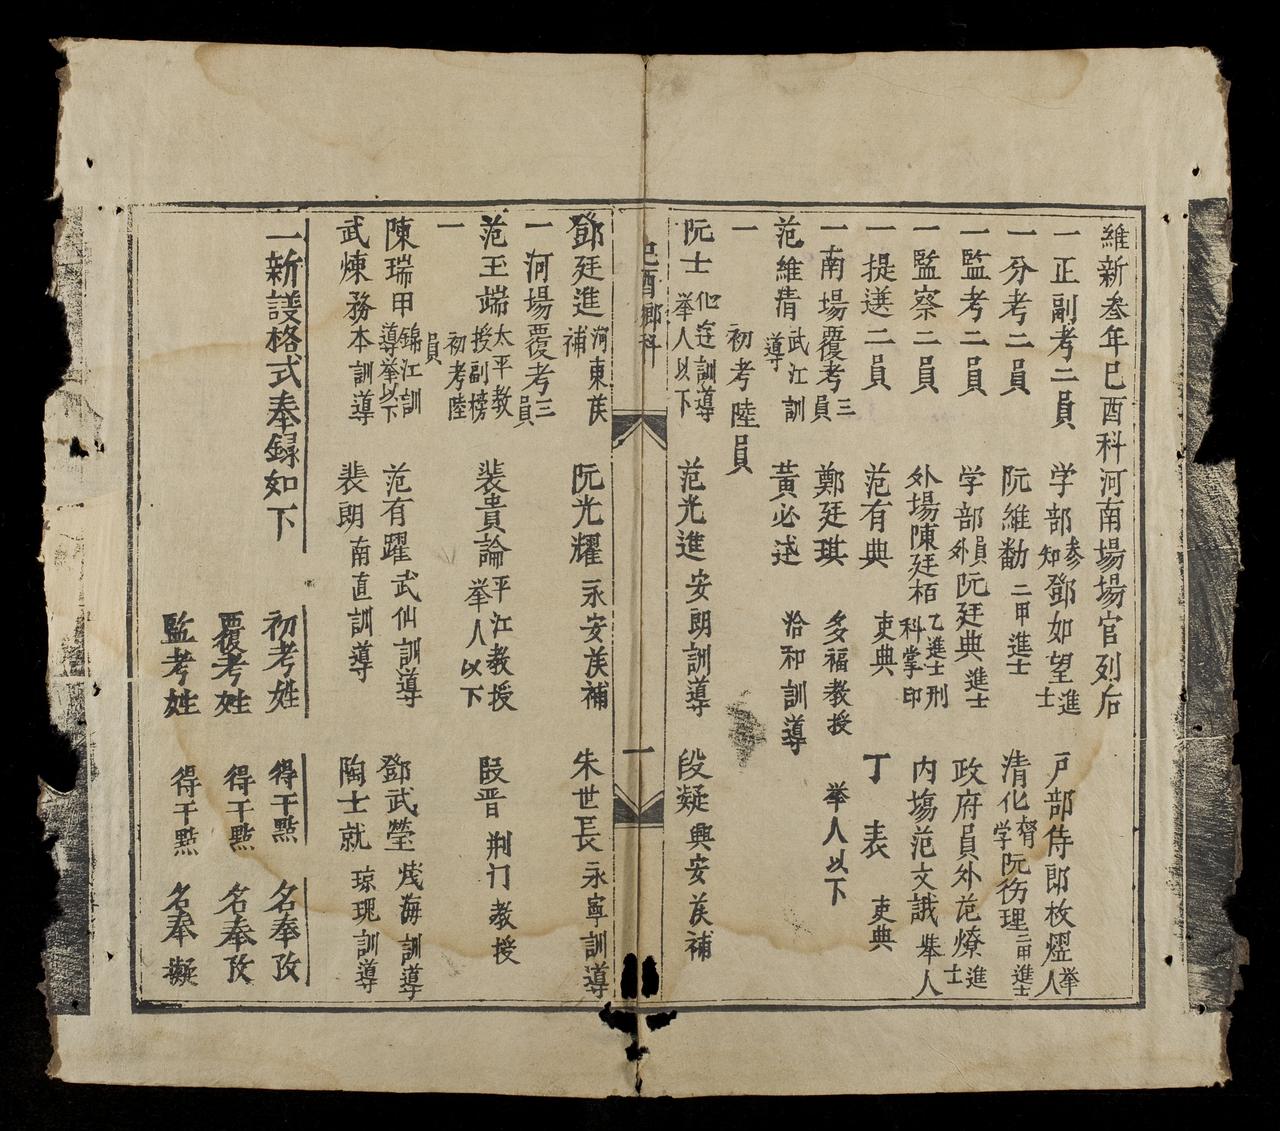 維新叁年己酉科河南場場官列后
一正副考二員 学部参知鄧如望進士 戸部侍郎枚熤举人
一分考二員 阮維勸二甲進士 清化督学阮㑥理二甲進士
一監考二員 学部員外阮廷典進士 政府員外范燎進士
一監察二員 外場陳廷栢乙進士刑科掌印 内塲范文誐举人
一提遴二員 范有典吏典 丁表吏典
一南場覆考三員 鄭廷琪多福教授举人以下
范維清武江訓導 黃必述洽和訓導
一初考陸員
阮士化延訓導举人以下 范光進安朗訓導 段凝興安矦補
己酉鄉科 一
鄧廷進河東矦補 阮光耀永安矦補 朱世長永寧訓導
一河場覆考三員
范玉端太平教授副榜 裴貴論平江教授举人以下 段晋荆门教授
一初考陸員
陳瑞甲錦江訓導举以下 范有躍武仙訓導 鄧武瑩浅海訓導
武煉務本訓導 裴朗南直訓導 陶士就琼瑰訓導
一新諩格式奉録如下 初考姓 得干㸃 名奉攷
覆考姓 得干㸃 名奉攷
監考姓 得干㸃 名奉擬